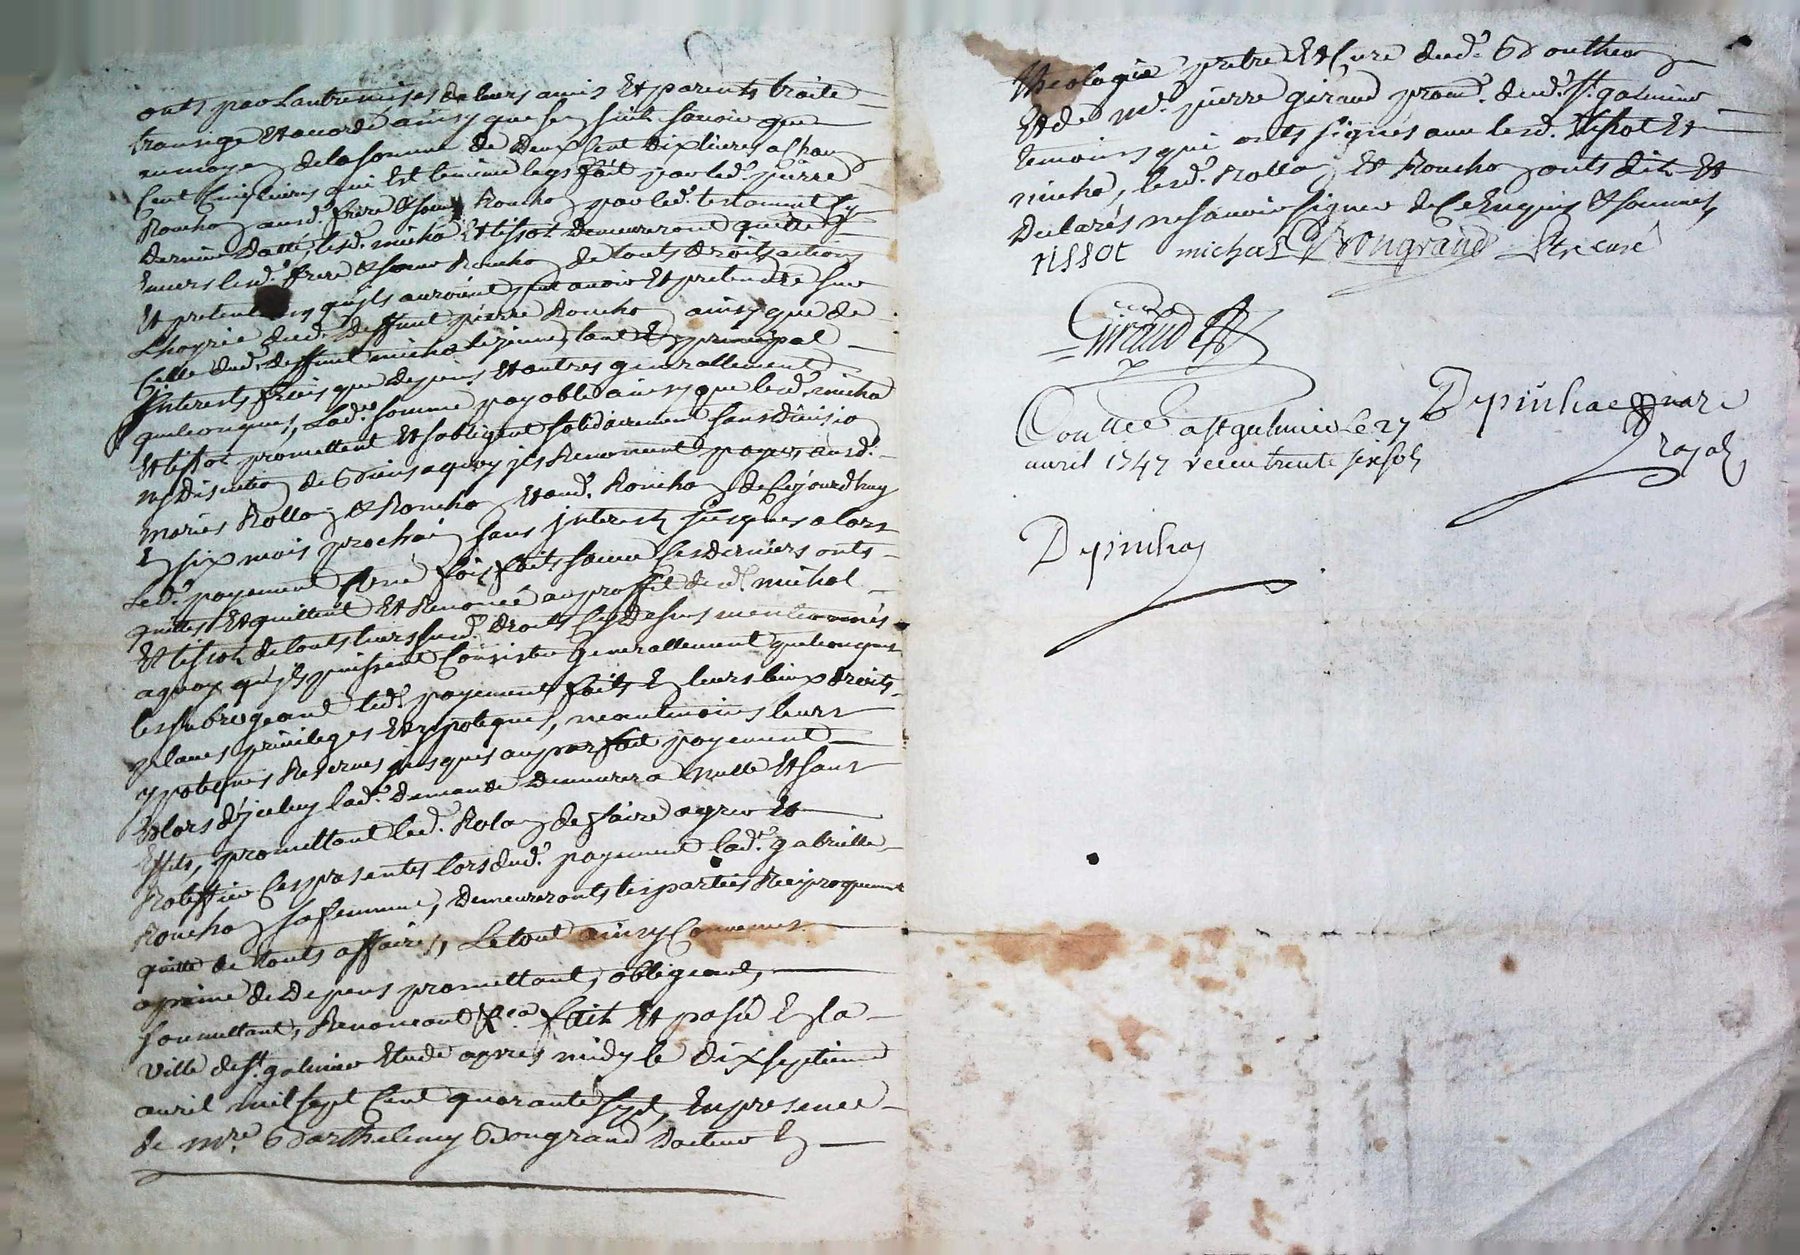 onts par Lantremises de leurs amis Et parents traité
transigé Et accordé ainsy que sen suit savoir que
au moyen de la somme de Deux Cent dix livres a chan
Cent Cinq livres qui Est le même legs fait par led. pierre
Ronchon ausd. frere & sœur Ronchon par led. testament cy
dernier Datté, lesd. micha Et tissot Demeureront quitte
Envers lesd. frere & sœur Ronchon de touts droits actions
Et pretentions qu'jls auroient peut avoir Et pretendre sur
Lhoyrie dud. deffunt pierre Ronchon ainsy que de
Celle dud. deffunt micha le jeune, tant En principal
Interests frais que depens Et autres generallement
quelconques, Lad. somme payable ainsy que lesd. micha
Et tissot promettent Et sobligent solidairement sans Division
ny Discution de Biens a quoy jls Renoncent payer ausd.
mariés Rollan & Ronchon Et aud. Ronchon de Cejourdhuy
En six mois prochain sans jnterests jusques alors
Led. payement Une fois fait Comme Ces derniers onts
quittes Et quittent Et Renoncé au proffit desd. michal
Et tissot de touts leurs susd. Droits Cy Dessus mentionnés
a quoy qu'jls puissent Consister generallement quelconques
les subrogeant led. payement fait En leurs lieux droits
places privileges Et ypoteques, neantmoins leurs
ypoteques Reserves jusques au parfait payement
Et lors d'jceluy lad. demande Demeurera nulle Et sans
Effets, promettant led. Rolan de faire agreer Et
Ratiffier Ces presentes lors dud. payement lad. gabrielle
Ronchon sa femme, Demeureronts les parties Reciproquement
quitte de touts affaires, Le tout ainsy Convenus
a peine de Depens promettant, obligeant,
soumettant, Renonceant &ca fait Et passé En la
ville de St. galmier Etude apres midy le Dix septieme
avril mil sept Cent quarante sept, En presence
de mre. Barthelemy Bongrand Docteur En
theologie pretre Et Curé dud. Bouthéon
Et de Mr. pierre giraud procr. dud. St. galmier
temoins qui onts signés avec lesd. tissot Et
micha, lesd. Rollan & Ronchon onts dit Et
Declarés ne savoir signer de Ce Enquis & sommés
tissot michal Bongrand ptre curé
Giraud
Depinhac nore
royal
Conttrollé a St galmier le 27
avril 1747 receu trente six sols
Depinhac